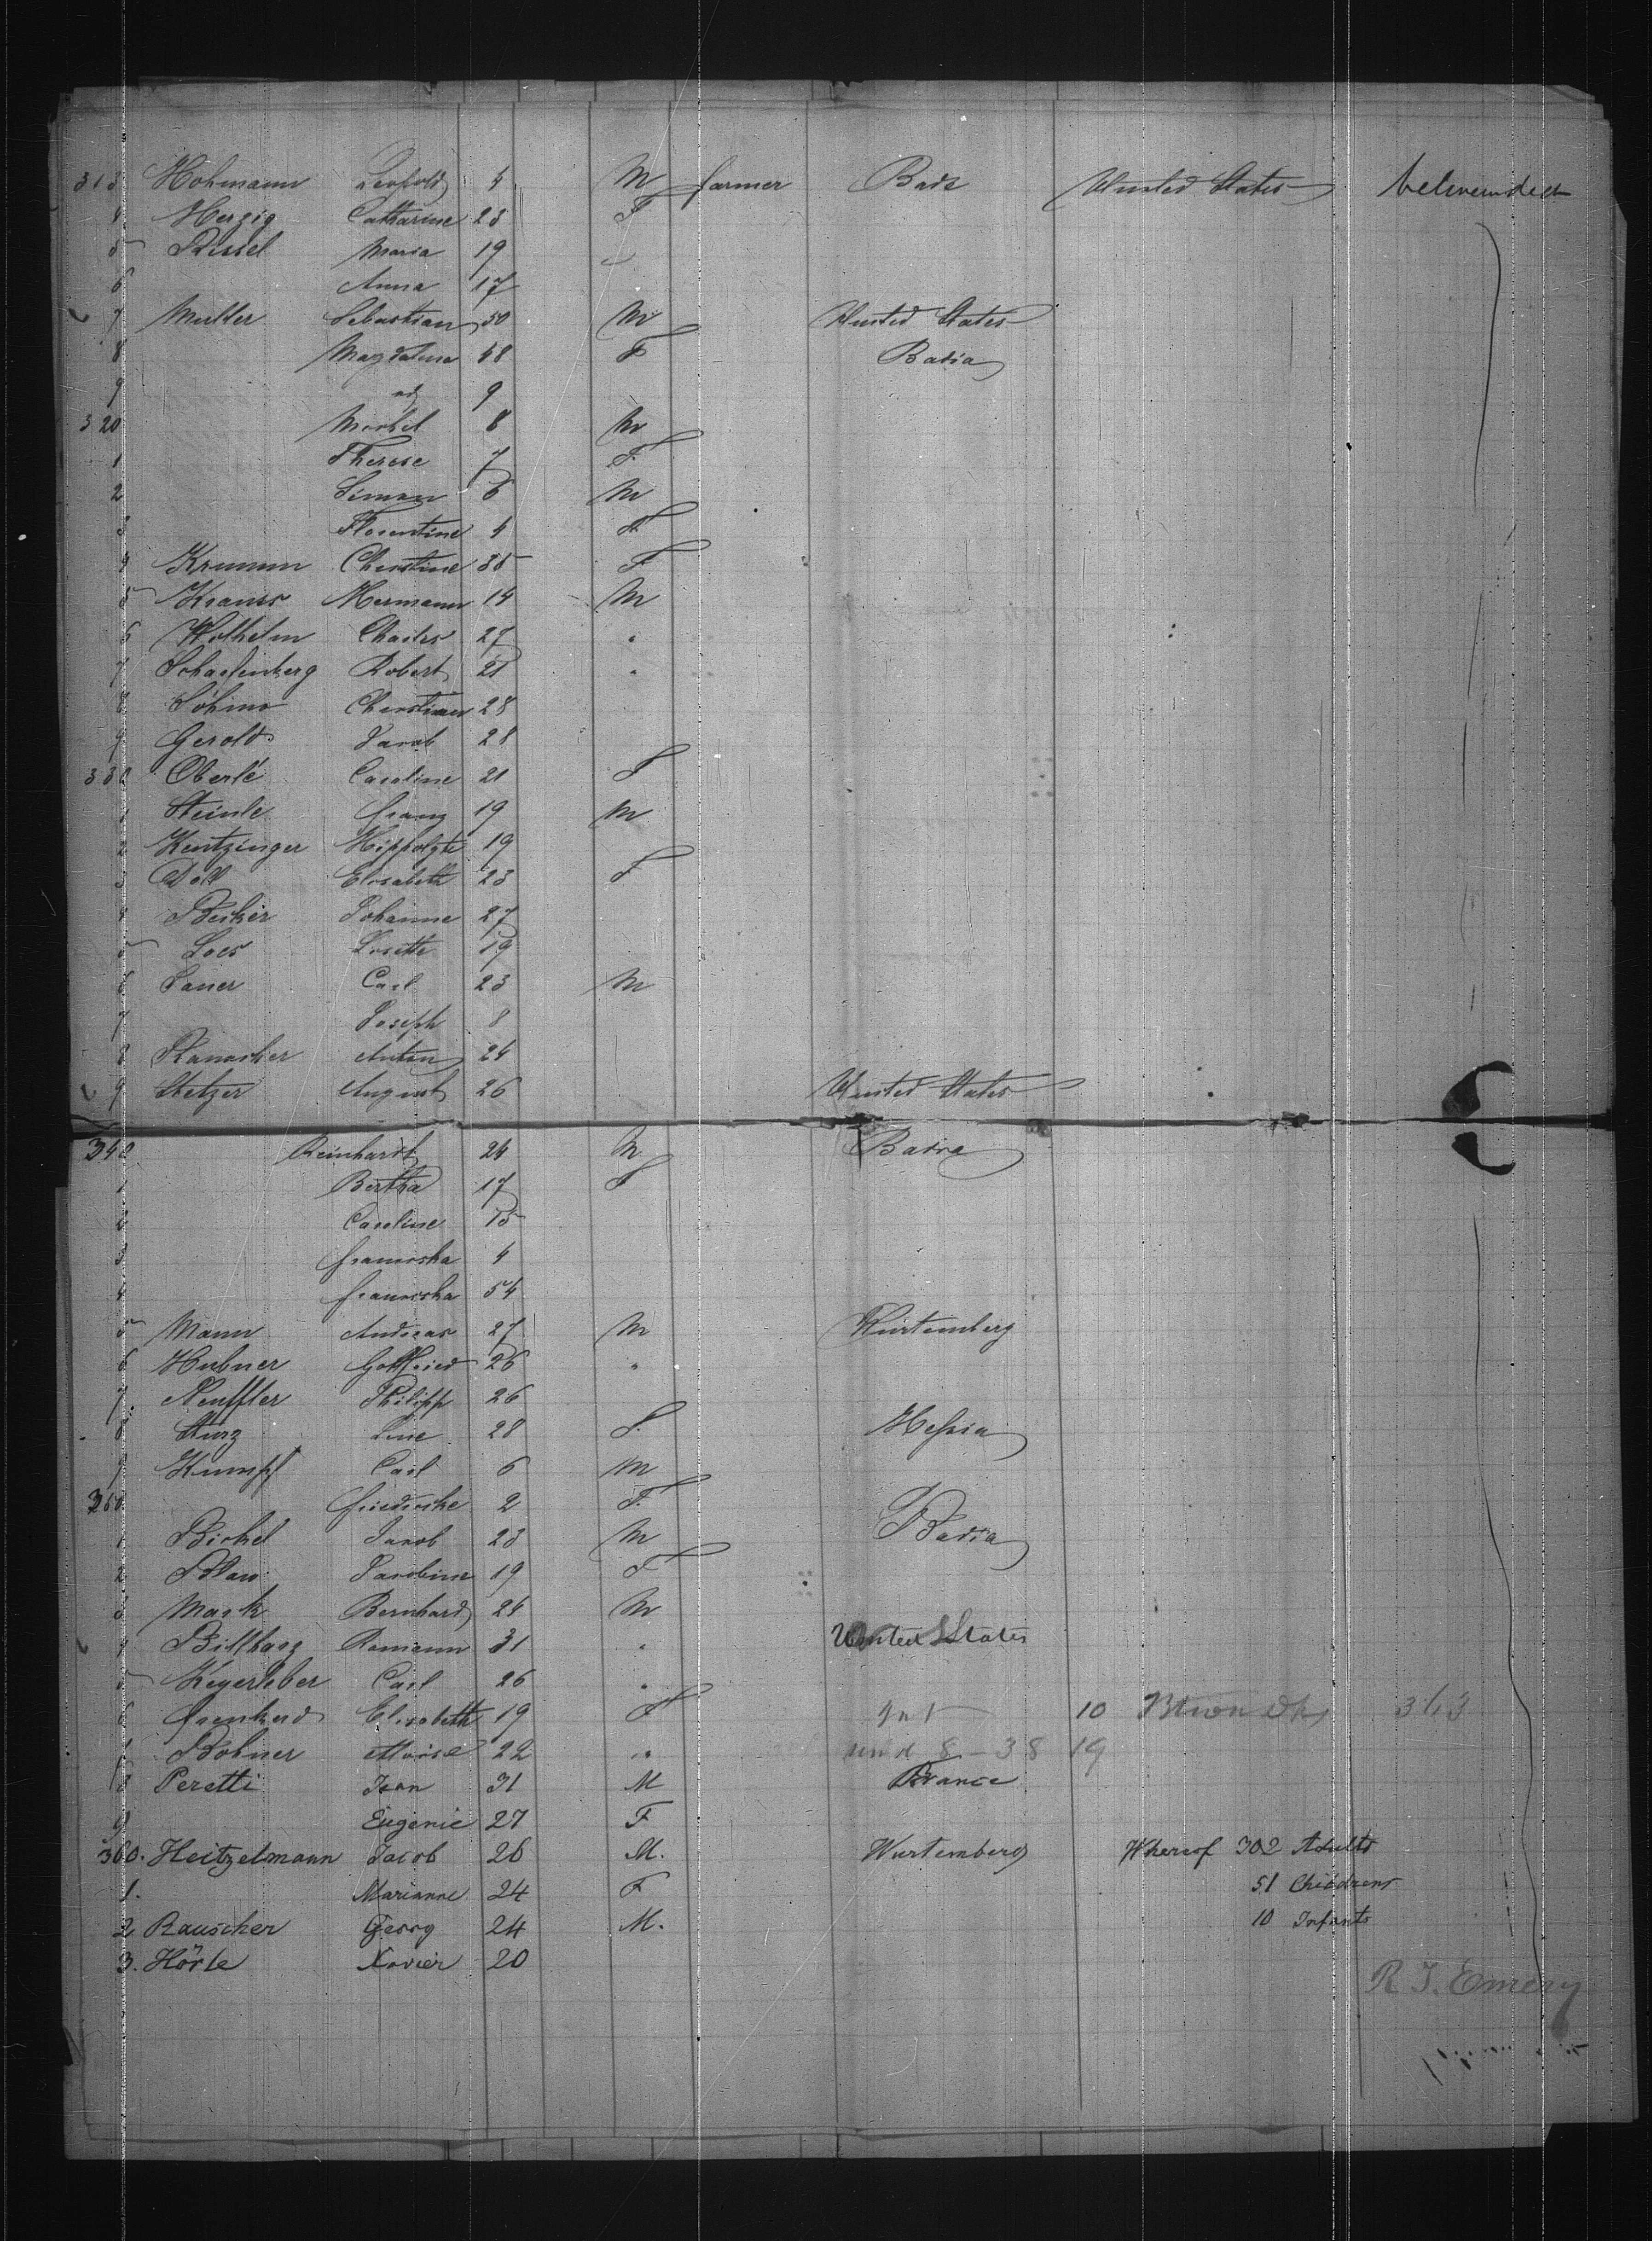 313 Hohmann Leopold 4 M farmer Bade United States betweendeck
4 Herzig Catharine 23 F
5 Rissel Maria 19
6 Anna 17
7 Muller Sebastian 50 M United States
8 Magdalena 48 F Badia
9 id 9
320 Michel 8 M
1 Therese 7 F
2 Simon 6 M
3 Florentine 4 F
4 Krumm Christine 35 F
5 Krauss Hermann 14 M
6 Wilhelm Charles 27 "
7 Scharfenberg Robert 21 "
8 Christian 28
9 Gerold Jacob 28
330 Oberlé Caroline 21 F
1 Steinle Franz 19 M
2 Kentzinger Hippolyte 19
3 Doll Elisabeth 23 F
4 Becker Johanne 27
5 Loes Lisette 19
6 Sauer Carl 23 M
7 Joseph 8
8 Anton 24
9 Stelzer August 26 United States
340 Reinhardt 24 M Badia
1 Bertha 17 F
2 Caroline 15
3 Franziska 4
4 Franziska 54
5 Mann Andreas 27 M Würtemberg
6 Hubner Gottfried 26 "
7 Neuffler Philipp 26
8 Kurz Line 28 F. Hessia
9 Kumpf Carl 6 M
350 Friedericke 2 F.
1 Bickel Jacob 23 M Badia
2 Blau Jacobine 19 F
3 Mack Bernhard 24 M
4 Billharz Romann 31 " United States
5 Keyerleber Carl 26 "
6 Elisabeth 19 F 10 363
7 Bohner 22 " 8 - 38 19
8 Peretti Jean 31 M France
9 Eugenie 27 F
360. Heitzelmann Jacob 26 M. Wurtemberg Whereof 302 Adults
1. Marianne 24 F 51 Childrens
2 Rauscher Georg 24 M. 10 Infants
3. Hörle Xavier 20
R J. Emery